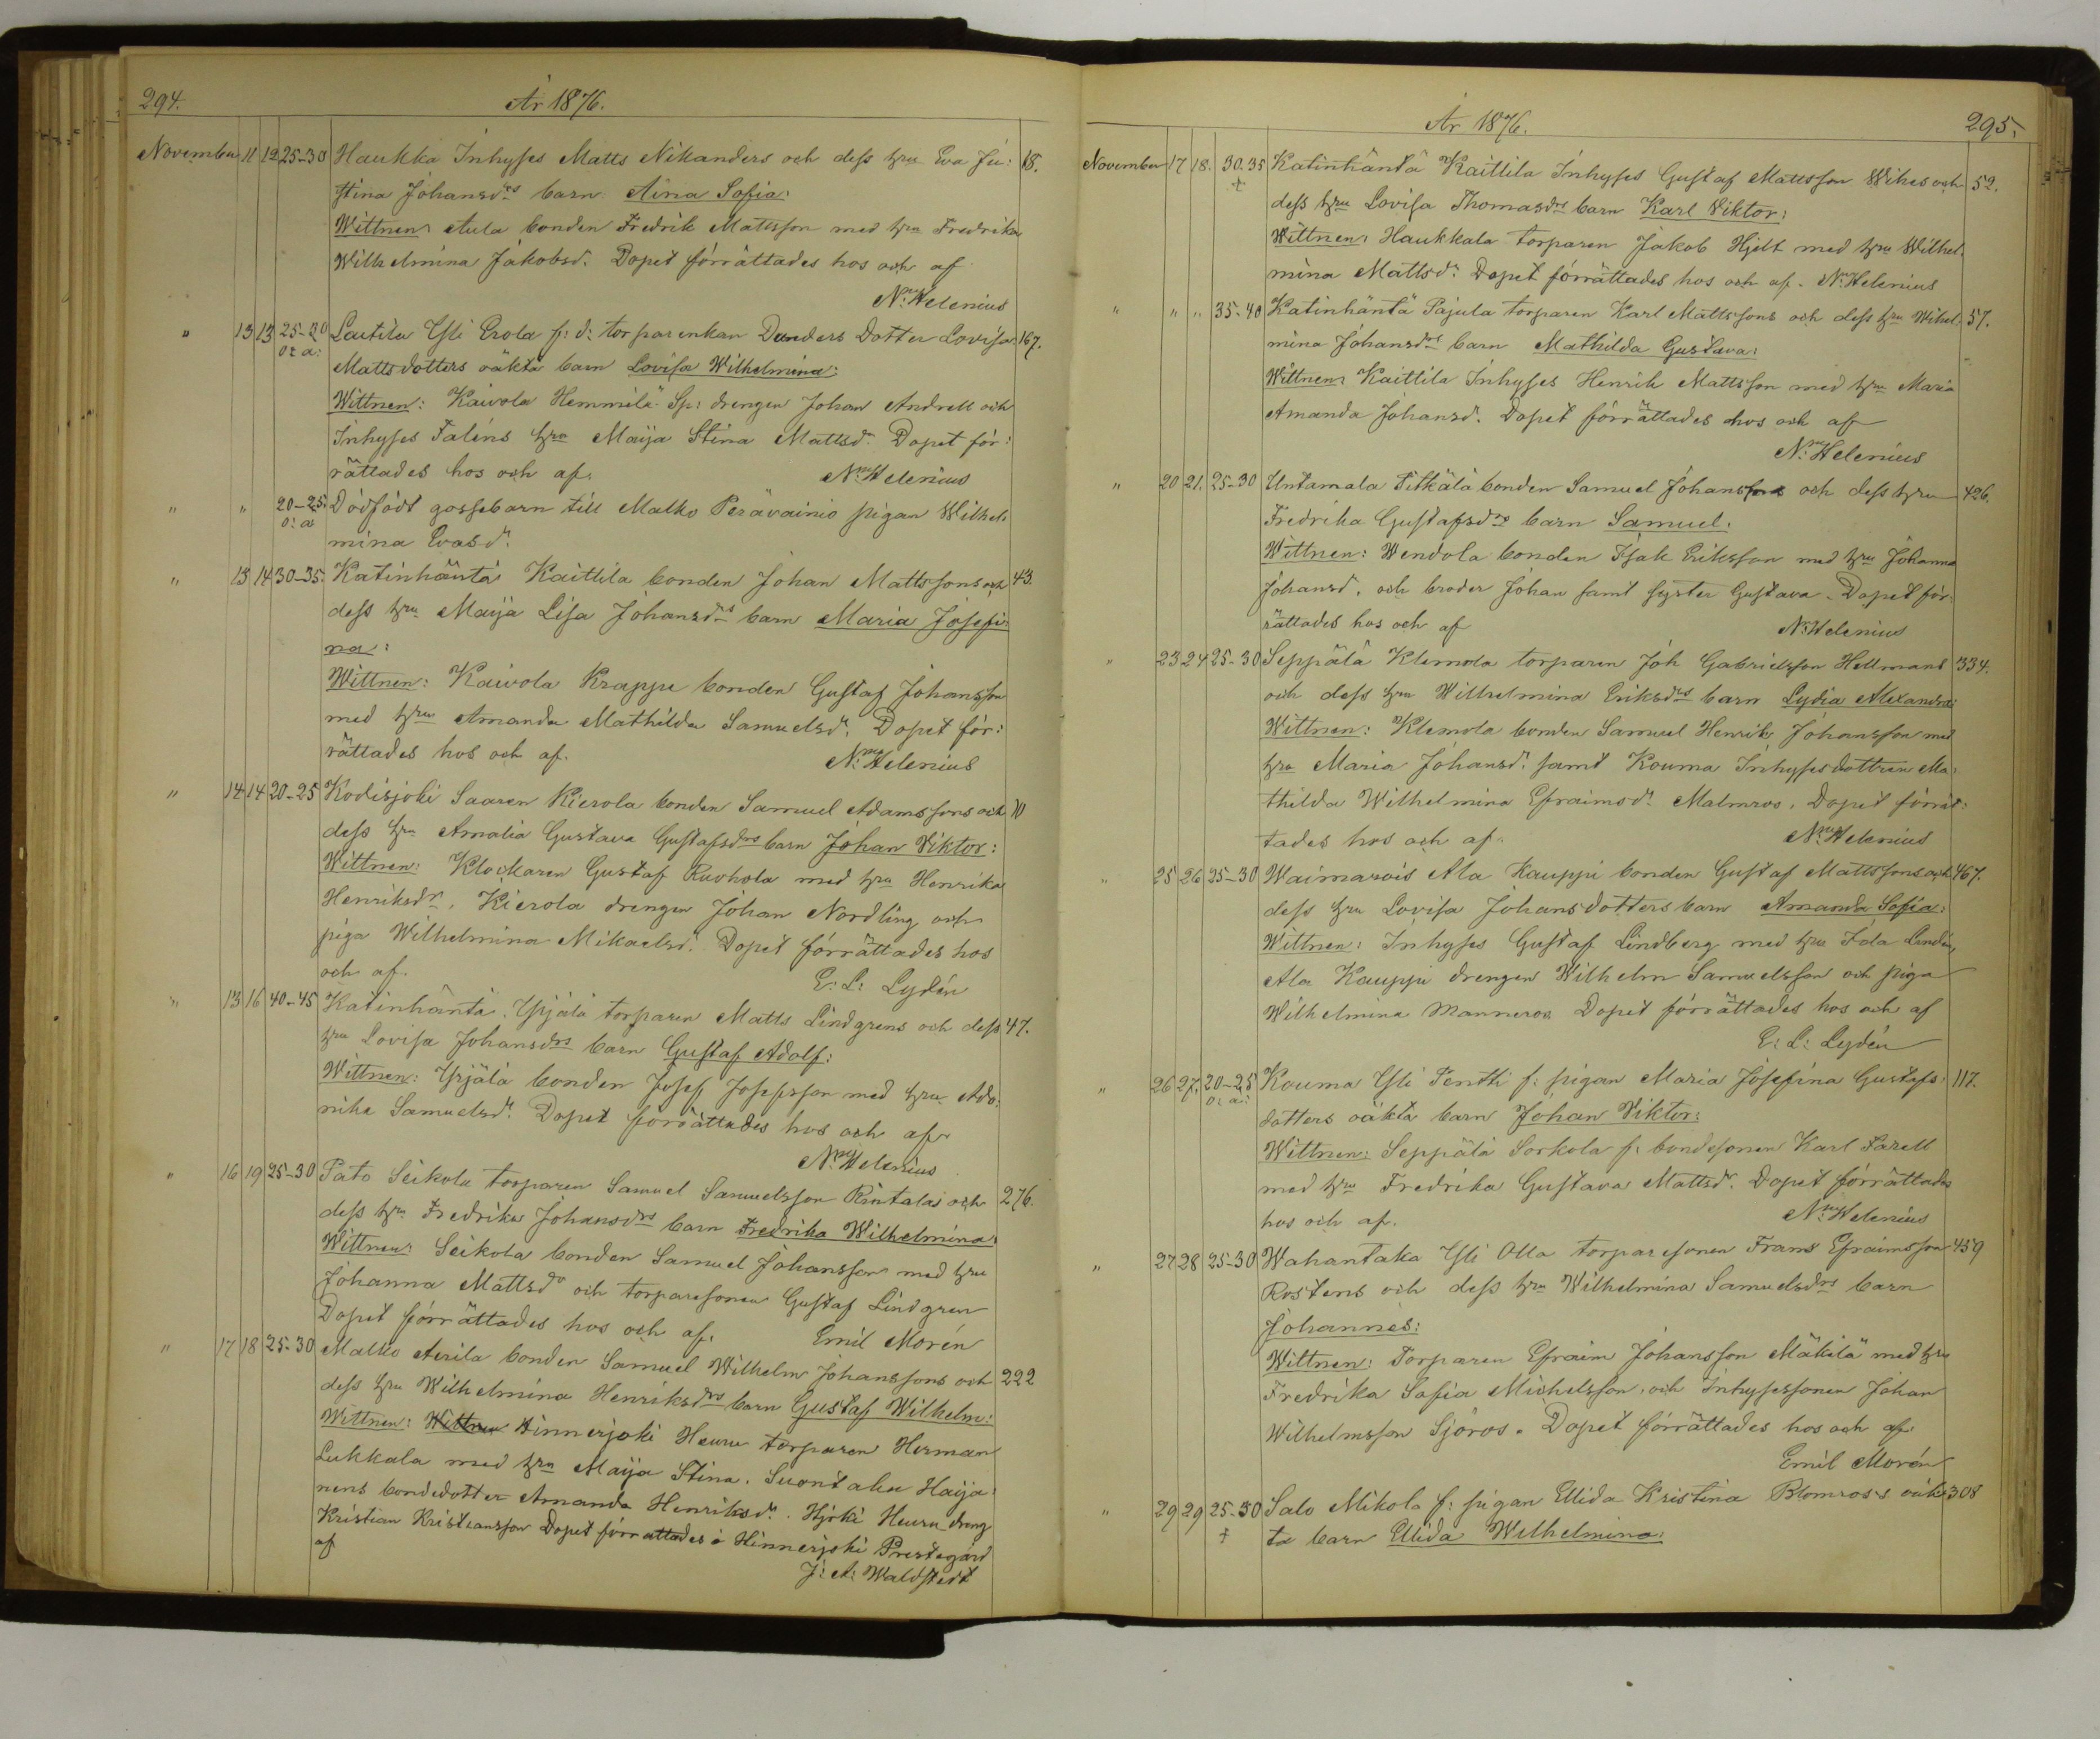 294.
År 1876.
November 11 12 25-30 Haukka Inhyses Matts Nikanders och dess hru Eva Ju: 18.
stina Johansdrs barn: Aina Sofia:
Wittnen: Aula bonden Fredrik Mattsson med hru Fredrika
Wilhelmina Jakobsdr. Dopet förrättades hos och af
Nme Helenius
" 13 13 25-30 Laitila Yli Erola f: d: torparenkan Danders Dotter Lovisa 167.
o: ä:
Mattsdotters oäkta barn Lovisa Wilhelmina:
Wittnen: Kaivola Hemmilä Sp: drengen Johan Andrell och
Inhyses Taléns hru Maija Stina Mattsdr Dopet för:
rättades hos och af. Nme Helenius
" " 20-25 Dödfödt gossebarn till Malko Perävainio pigan Wilhel:
o: ä:
mina Evasdr.
" 13 14 30-35 Katinhäntä Kaittila bonden Johan Mattssons och 43.
dess hru Maija Lisa Johansdrs barn Maria Josefi:
na:
Wittnen: Kaivola Krappe bonden Gustaf Johansson
med hru Amanda Mathilda Samuelsdr. Dopet för:
rättades hos och af. Nme Helenius
" 14 14 20-25 Kodisjoki Saaren Kierola bonden Samuel Adamssons och 10
dess hru Amalia Gustava Gustafsdrs barn Johan Viktor:
Wittnen: Klockaren Gustaf Ruohola med hru Henrika
Henriksdr, Kierola drengen Johan Nordling och
piga Wilhelmina Mikaelsd. Dopet förrättades hos
och af. E: L: Lydén
" 13 16 40-45 Katinhäntä Yrjälä torparen Matts Lindgrens och dess 47.
hru Lovisa Johansdrs barn Gustaf Adolf:
Wittnen: Yrjälä bonden Josef Josefsson med hru Ado:
nika Samuelsdr. Dopet förrättades hos och af
Nme Helenius
" 16 19 25-30 Pato Seikola torparen Samuel Samuelsson Rintalas och 276.
dess hru Fredrika Johansdrs barn Fredrika Wilhelmina:
Wittnen: Seikola bonden Samuel Johansson med hru
Johanna Mattsdr och torparesonen Gustaf Lindgren
Dopet förrättades hos och af. Emil Morén
" 17 18 25-30 Malko Anila bonden Samuel Wilhelm Johanssons och 222
dess hru Wilhelmina Henriksdrs barn Gustaf Wilhelm:
Wittnen: Wittnen Hinnerjoki Heuru torparen Herman
Lukkala med hru Maija Stina. Suontaka Haija:
nens bondedotter Amanda Henriksdr. Hjoki Heuru dreng
Kristian Kristiansson Dopet förrättades å Hinnerjoki Prestegård
af
J: A: Waldstedt
År 1876.
295.
November 17 18. 30.35 Katinhäntä Kaittila Inhyses Gustaf Mattsson Wihes och 52.
+
dess hru Lovisa Thomasdrs barn Karl Viktor:
Wittnen: Haukkala torparen Jakob Hjelt med hru Wilhel:
mina Mattsdr. Dopet förrättades hos och af. Nme Helenius
" " " 35-40 Katinhäntä Pajula torparen Karl Mattssons och dess hru Wihel: 57.
mina Johansdrs barn Mathilda Gustava:
Wittnen: Kaittila Inhyses Henrik Mattsson med hru Maria
Amanda Johansd. Dopet förrättades hos och af
Nme Helenius
" 20 21. 25-30 Untamala Pitkälä bonden Samuel Johanssons och dess hru 426.
Fredrika Gustafsdrs barn Samuel:
Wittnen: Wendola bonden Isak Eriksson med hru Johanna
Johansd. och broder Johan samt syster Gustava. Dopet för:
rättades hos och af Nme Helenius
" 23 24 25-30 Seppälä Klemola torparen Joh Gabrielsson Hellmans 334.
och dess hru Wilhelmina Eriksdrs barn Lydia Alexandra:
Wittnen: Klemola bonden Samuel Henrik Johansson med
hru Maria Johansdr. samt Kouma Inhysesdottren Ma:
thilda Wilhelmina Efraimsdr. Malmros, Dopet förrät:
tades hos och af. Nme Helenius
" 25 26 25-30 Waimarois Ala Kauppi bonden Gustaf Mattssons och 467.
dess hru Lovisa Johansdotters barn Amanda Sofia:
Wittnen: Inhyses Gustaf Lindberg med hru Ida Lundén,
Ala Kauppi drengen Wilhelm Samuelsson och piga
Wilhelmina Manneros Dopet förrättades hos och af
E: L: Lydén
" 26 27. 20-25 Kouma Yli Pentti f: pigan Maria Josefina Gustafs: 117.
o: ä:
dotters oäkta barn Johan Viktor:
Wittnen: Seppälä Sorkola f: bondesonen Karl Farell
med hru Fredrika Gustava Mattsdr. Dopet förrättades
hos och af. Nme Helenius
" 27 28 25-30 Wahantaka Yli Olla torparesonen Frans Efraimsson 459
Rostens och dess hru Wilhelmina Samuelsdrs barn
Johannes:
Wittnen: Torparen Efraim Johansson Mäkilä med hru
Fredrika Sofia Michelsson, och Inhysessonen Johan
Wilhelmsson Sjöros. Dopet förrättades hos och af
Emil Morén
" 29 29 25-30 Salo Mikola f: pigan Ulida Kristina Blomross oäk: 308
+
ta barn Ulida Wilhelmina: